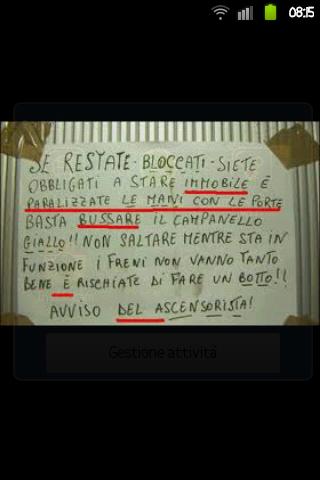 08:15
SE RESTATE - BLOCCATI - SIETE
OBBLIGATI A STARE IMMOBILE E
PARALIZZATE LE MANI CON LE PORTE
BASTA BUSSARE IL CAMPANELLO
GIALLO!! NON SALTARE MENTRE STA IN
FUNZIONE I FRENI NON VANNO TANTO
BENE E RISCHIATE DI FARE UN BOTTO!!
AVVISO DEL ASCENSORISTA!
Gestione attività